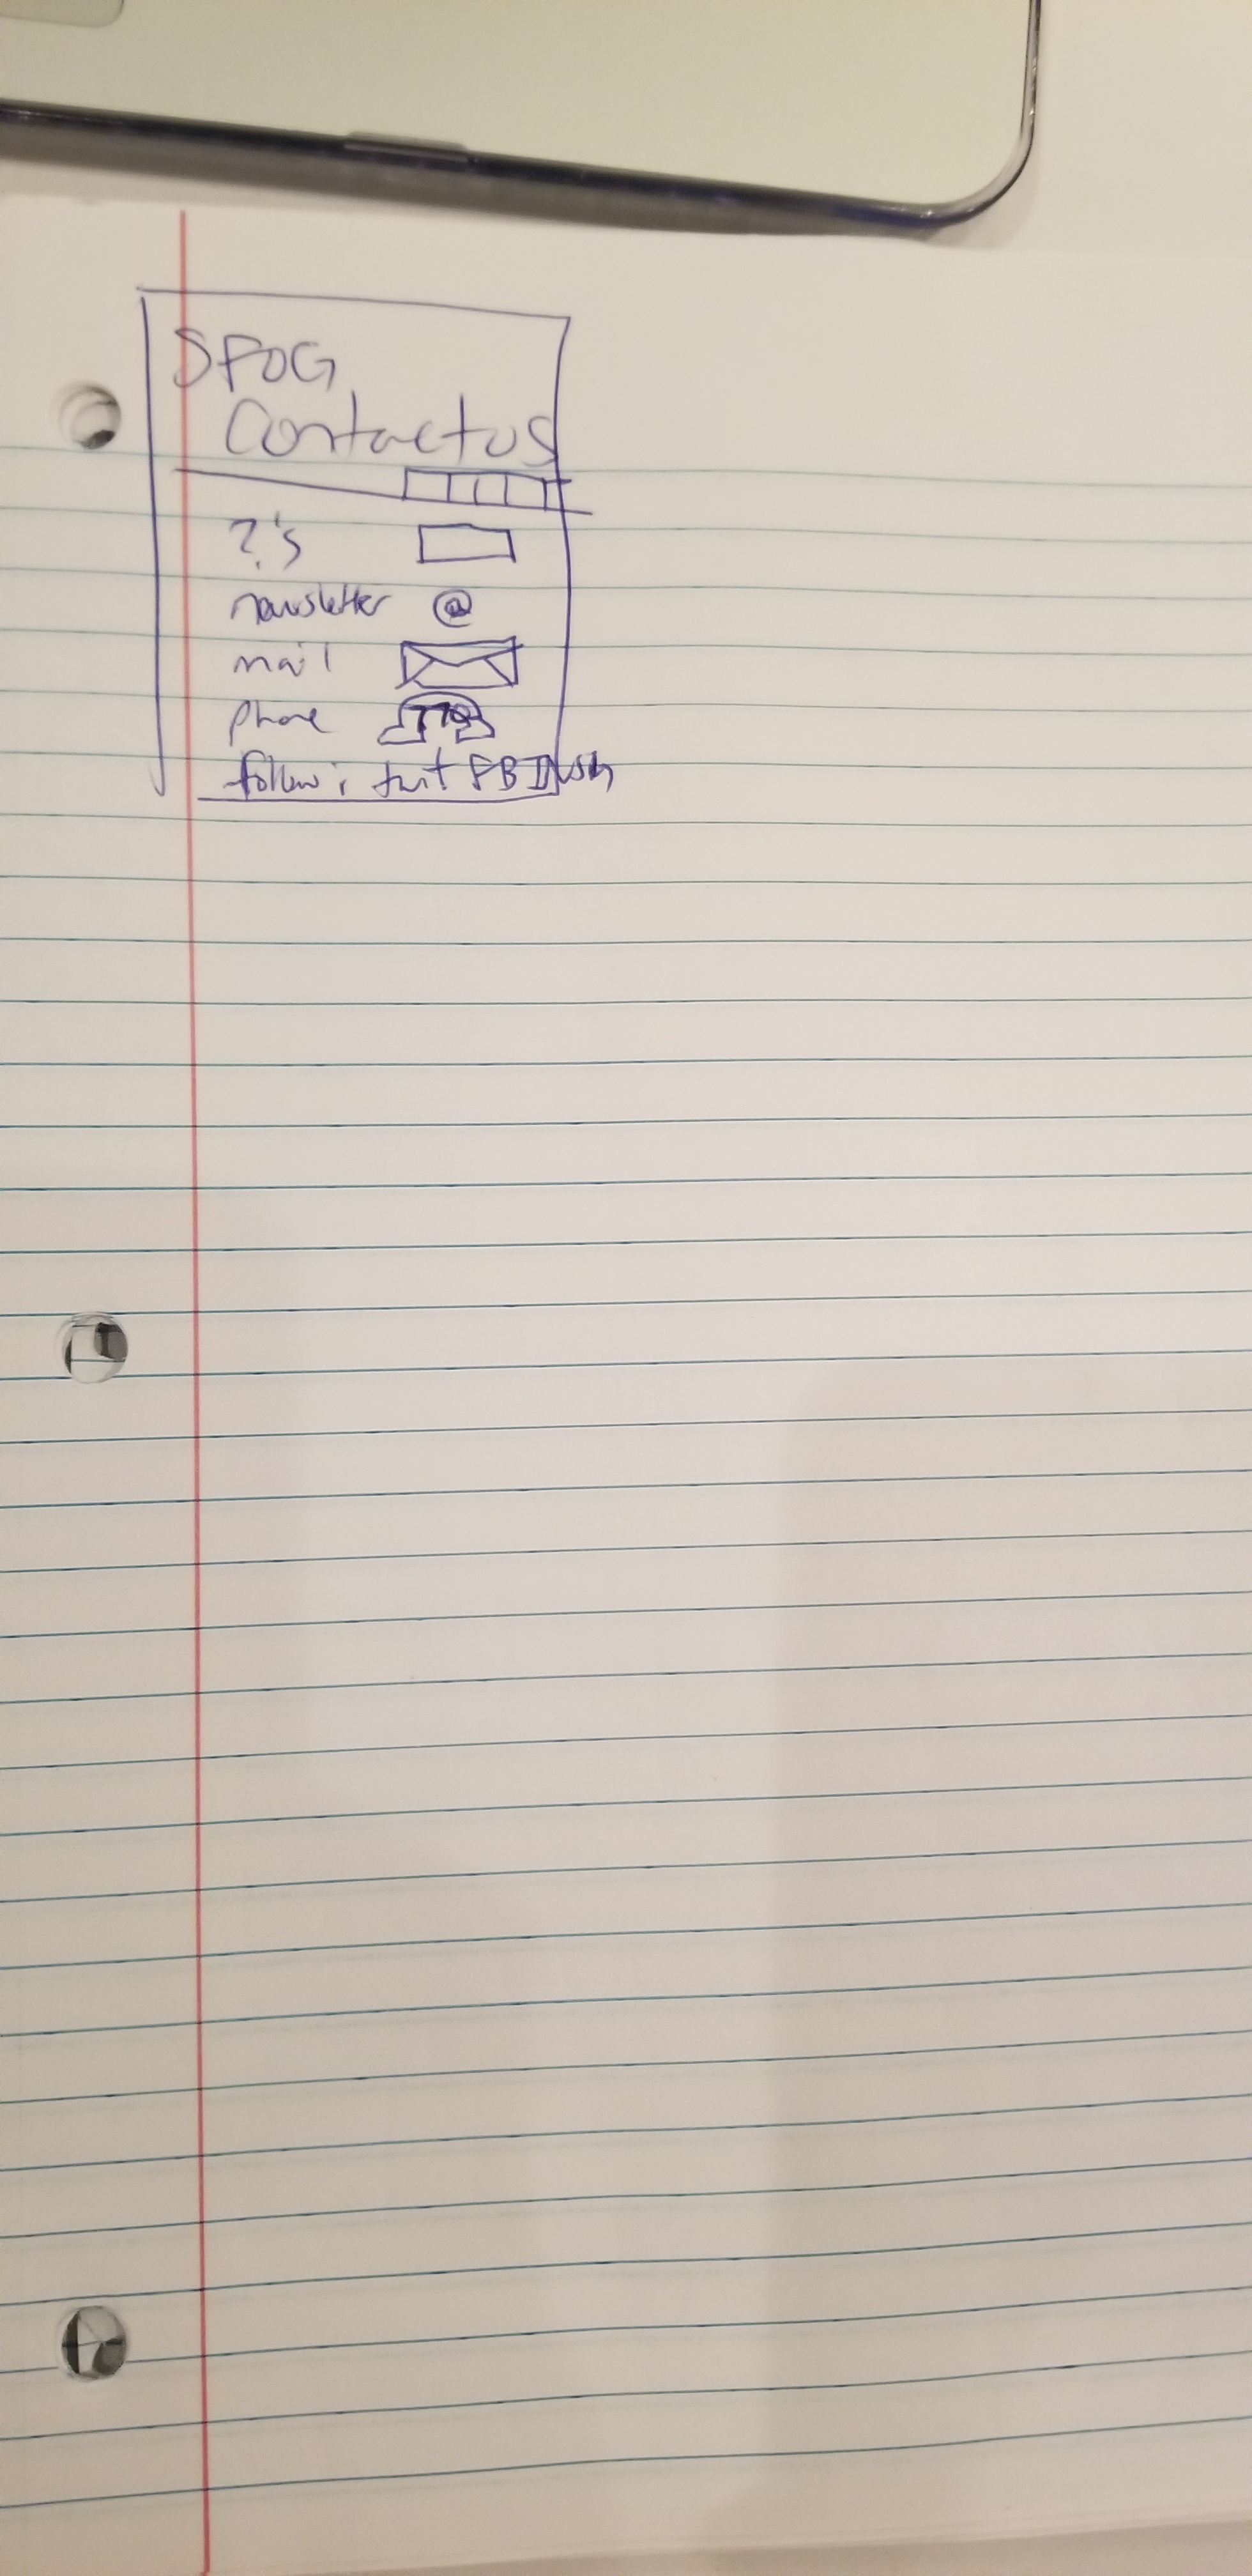 SFOG
Contact us
?'s
newsletter @
mail
phone 770
follow: twit FB